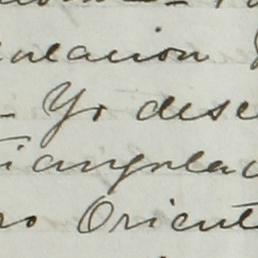 ulacion
- Yo dese
iangulac
ro Orient